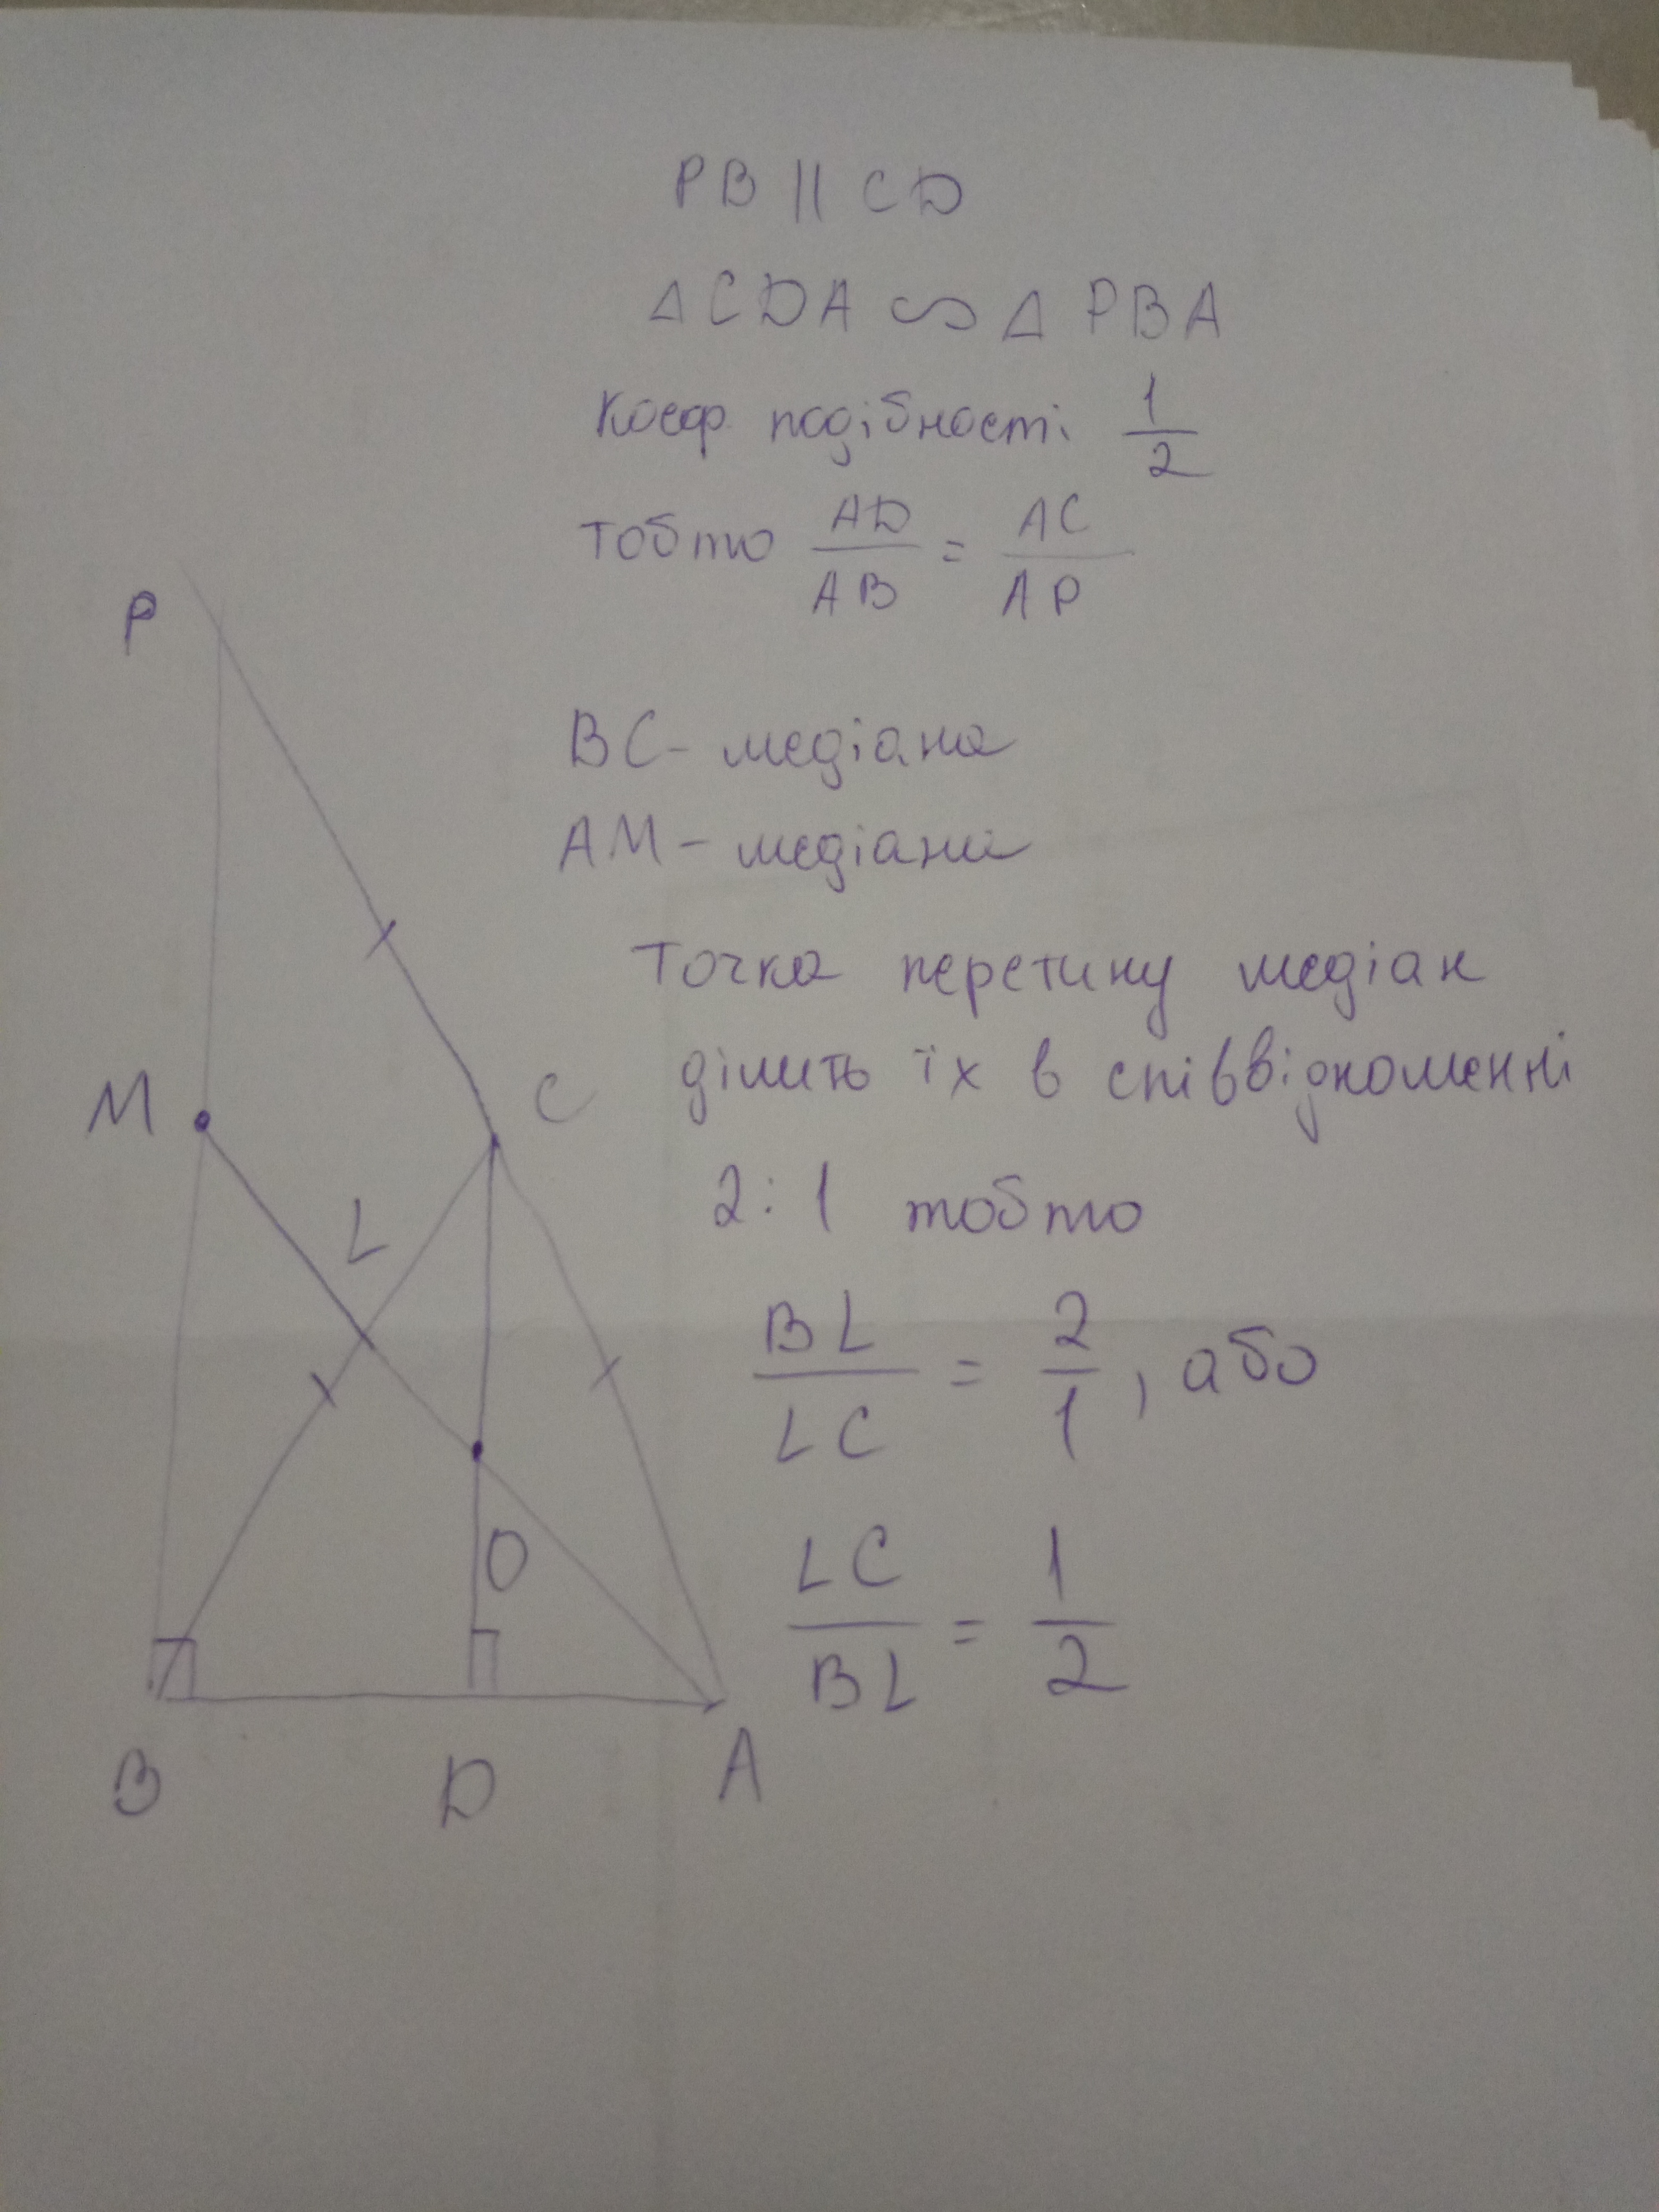 PB || CD
△CDA ∽ △PBA
Коеф подібності 1/2
Тобто AD/AB = AC/AP
P
BC - медіана
AM - медіана
Точка перетину медіан
ділить їх в співвідношенні
M
C
2:1 тобто
L
BL/LC = 2/1, або
O
LC/BL = 1/2
B D A